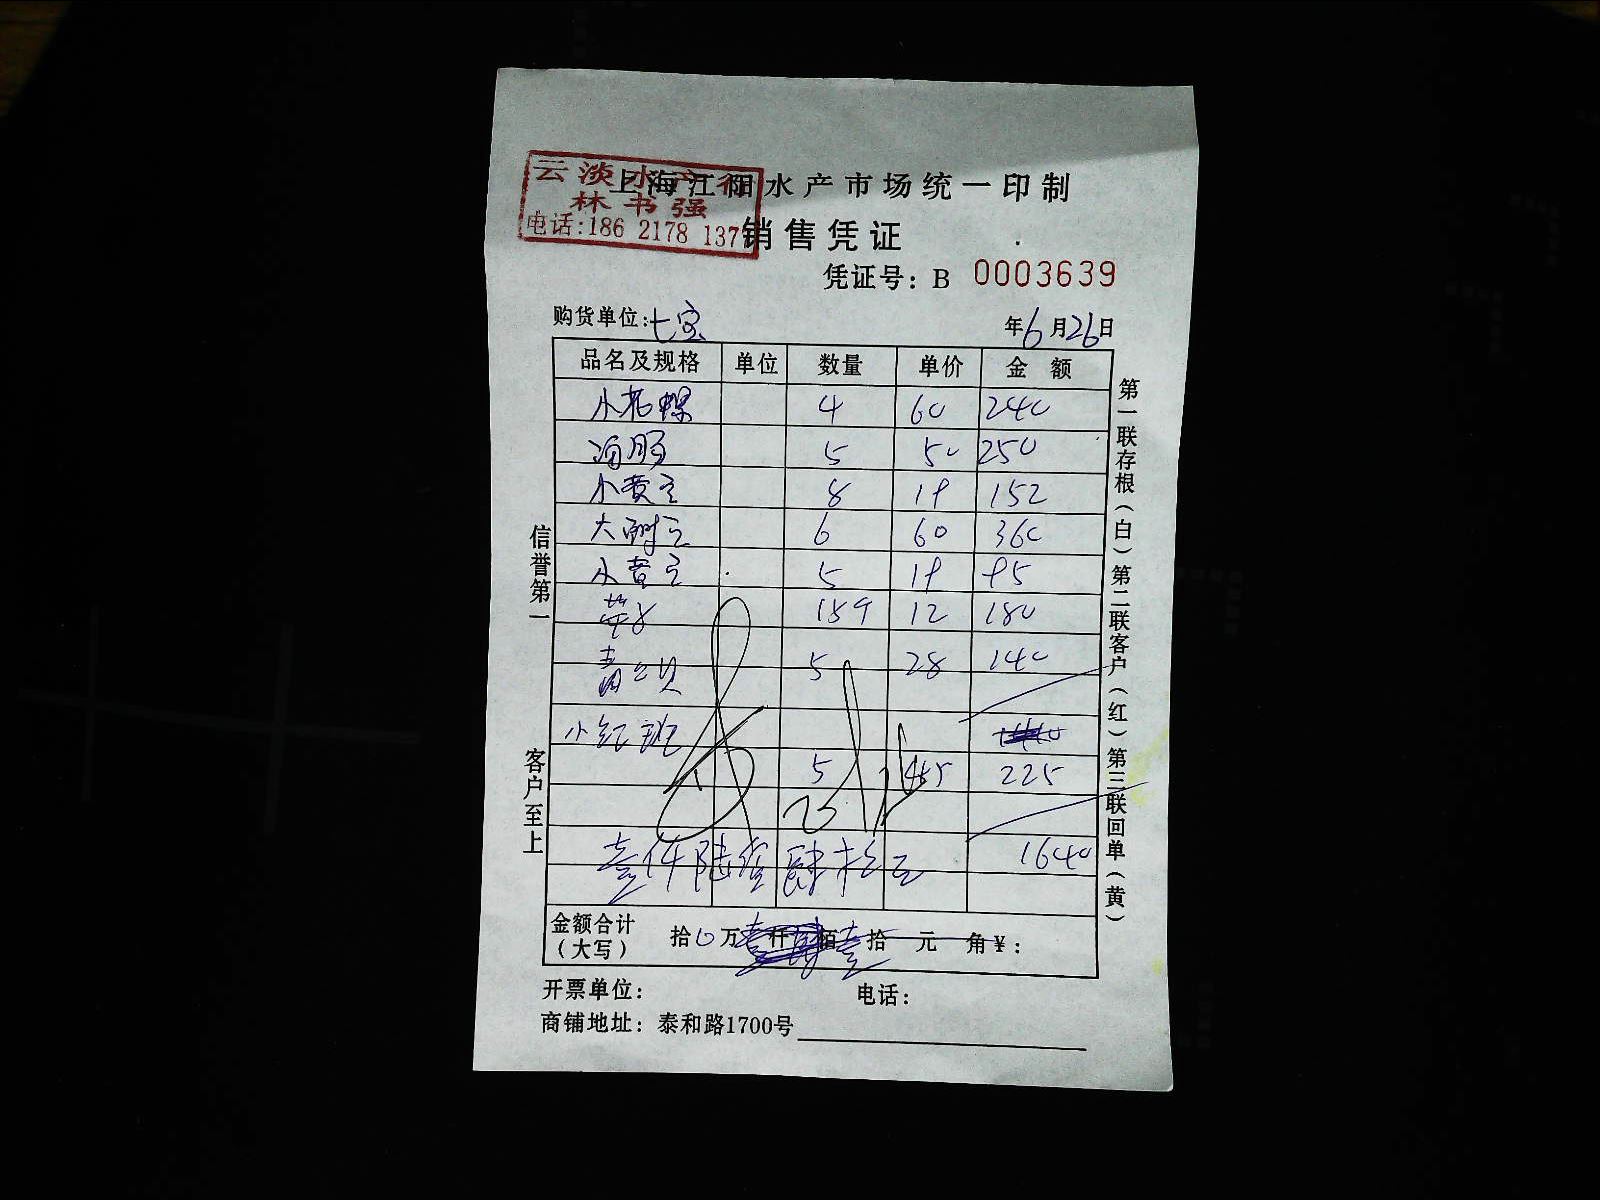 云淡水产行
林书强
电话:186 2178 137
上海江阳水产市场统一印制
销售凭证
凭证号: B 0003639
购货单位: 七宝 年 6 月 26 日
品名及规格 单位 数量 单价 金 额
4 60 240
海肠 5 50 250
小黄 8 19 152
大 6 60 360
小 5 19 95
12 180
青 5 28 140
小红斑
5 45 225
壹仟陆佰肆拾元 1640
金额合计(大写) 拾 万 仟 佰 拾 元 角 ¥:
开票单位: 电话:
商铺地址: 泰和路1700号
信誉第一
客户至上
第一联存根(白)第二联客户(红)第三联回单(黄)